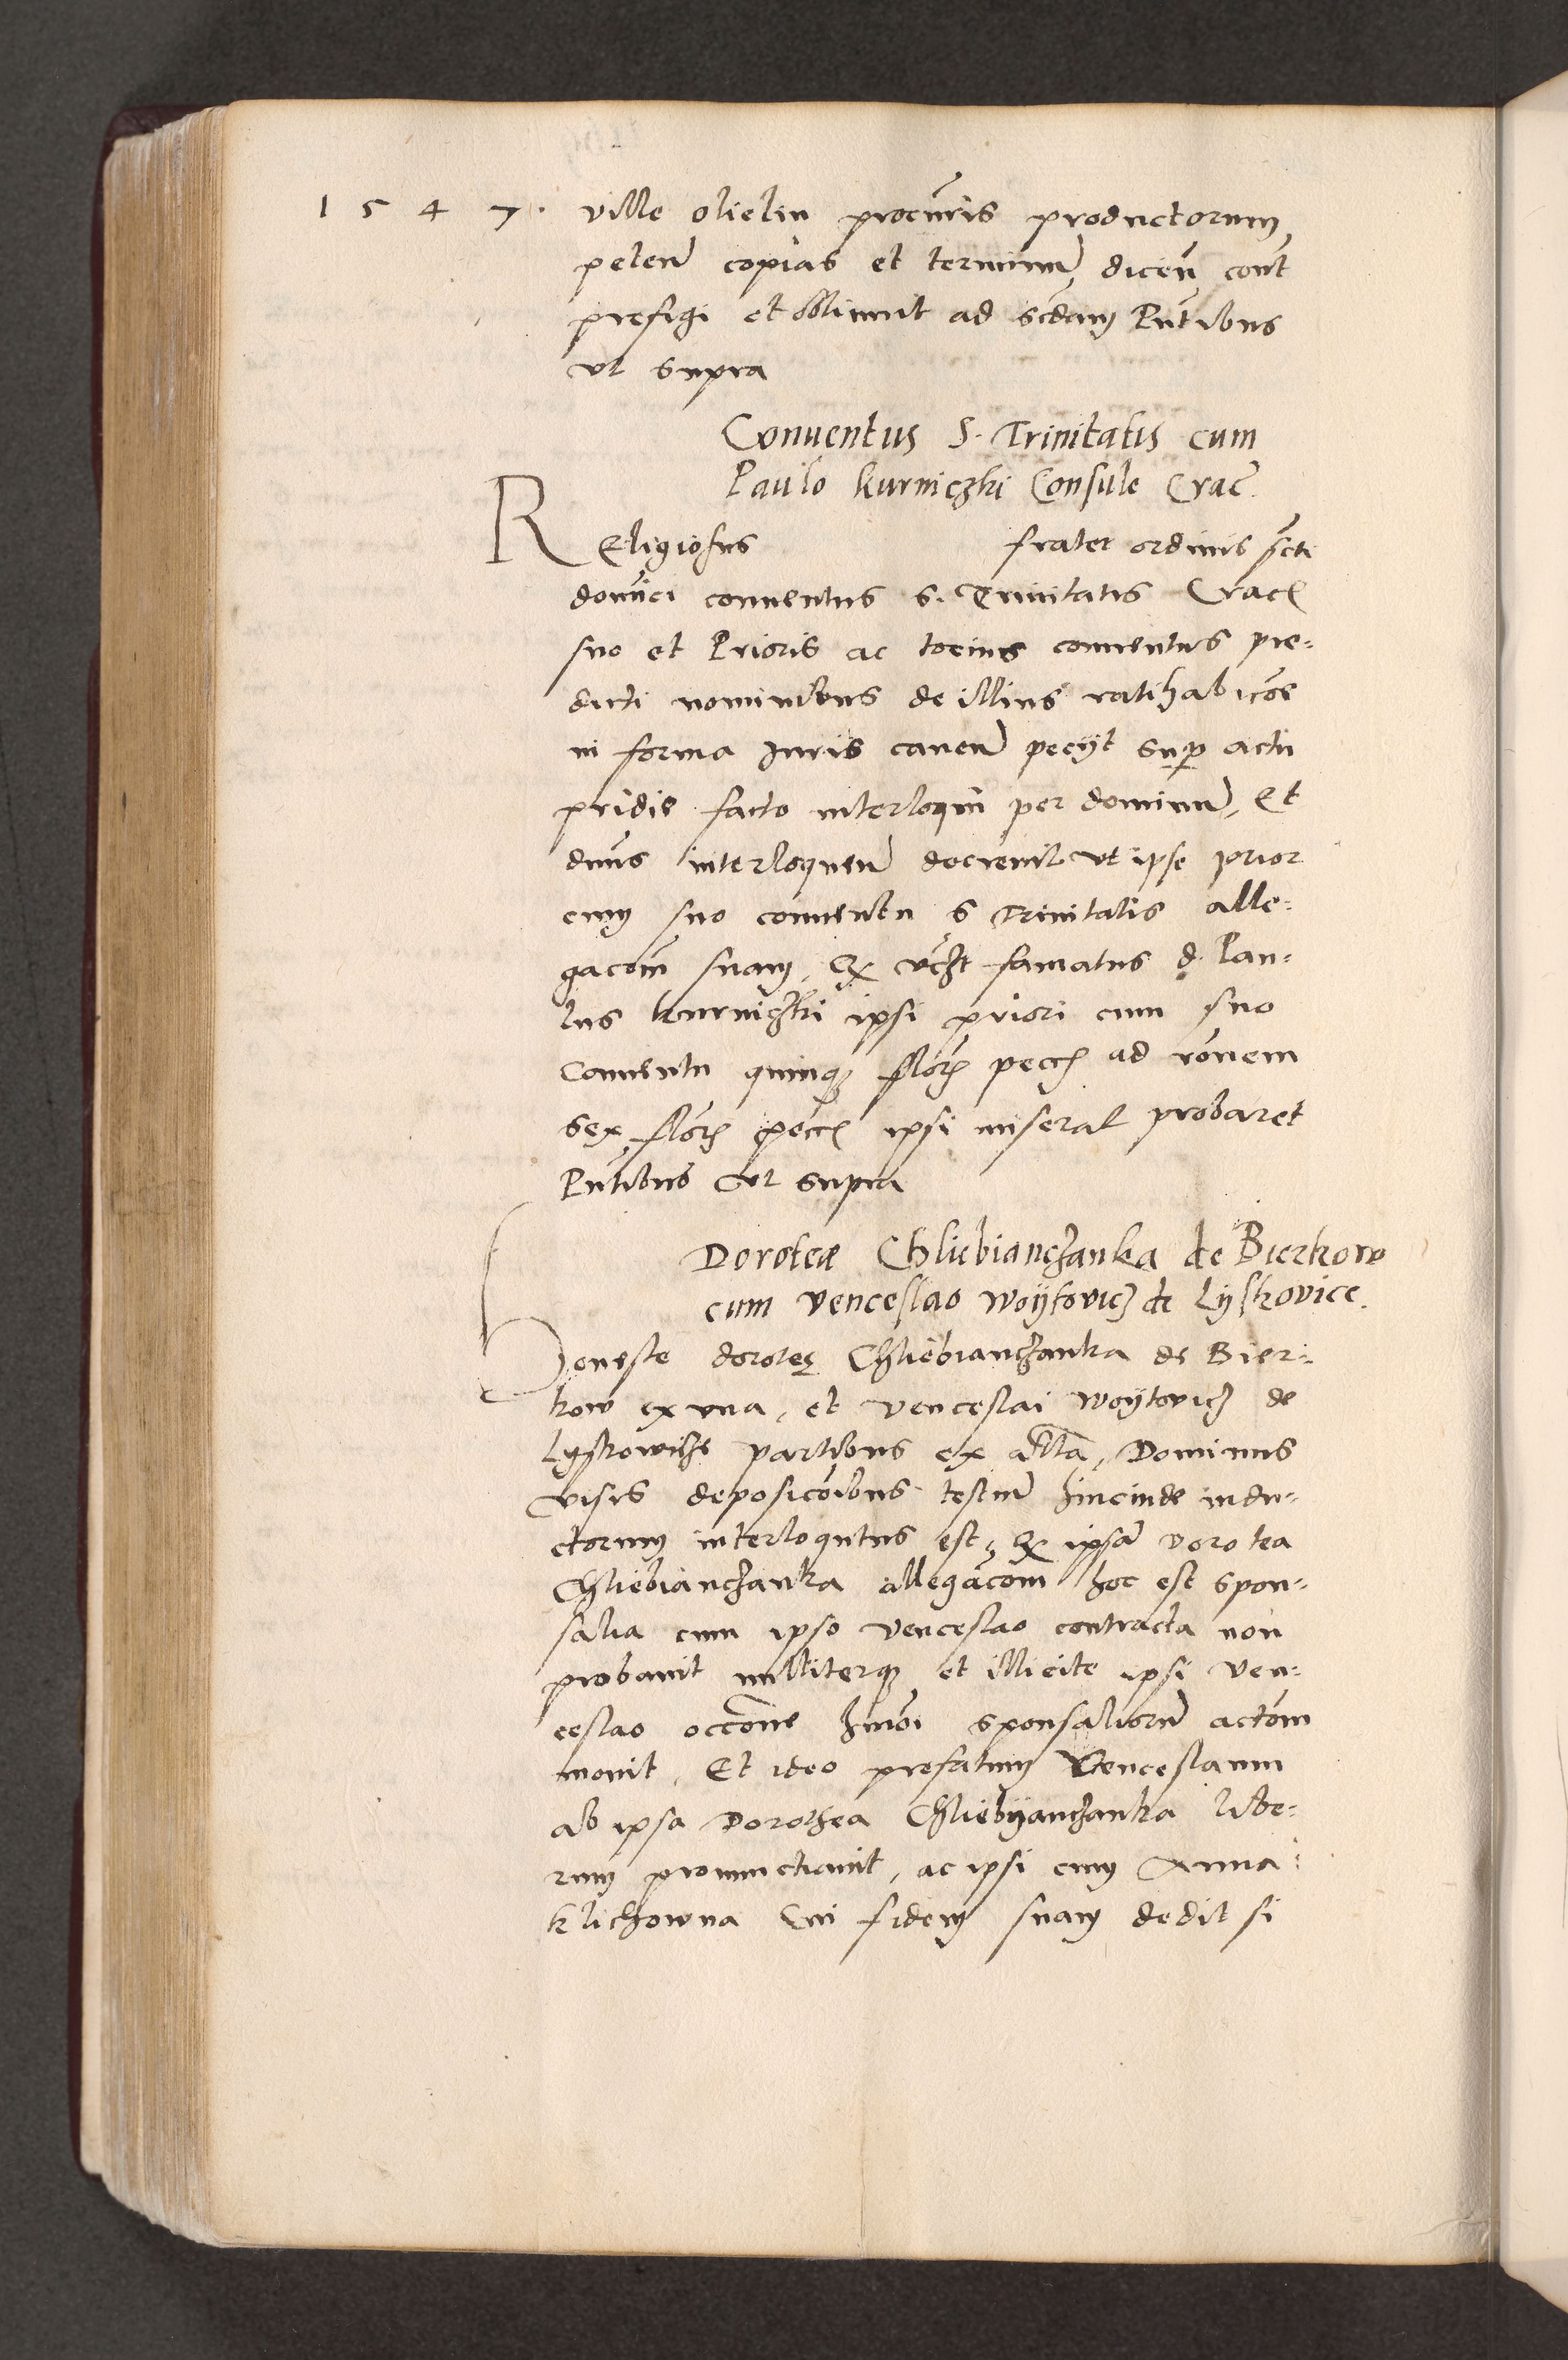 1 5 4 7. ville olielin procuris productorum
peten copias et terminum dicen cont
prefigi et obtinuit ad scdam Pntibus
ut supra
Conuentus S. Trinitatis cum
Paulo kurniczki Consule Crac.
Religiosus frater ordinis scti
dominici conuentus S. Trinitatis Crac
suo et Prioris ac tocius conuentus pre=
dicti nominibus de illius ratihabicoe
in forma Juris cauen peciit sup actu
pridie facto interloqui per dominum, Et
dnus interloquen decreuit ut ipse prior
cum suo conuentu S Trinitatis alle=
gacom suam, Qz famatus d. Pau=
lus kurniczki ipsi priori cum suo
Conuentu quinqz flor pecc ad ronem
sex flor pecc ipsi miserat probaret
Pntibus ut supra
Dorotea Chliebianczanka de Bierkow
cum Venceslao Woytovicz de Lyskovice.
Honeste dorotee Chliebianczanka de Bier=
kow ex una, et Venceslai Woytovicz de
Lyskowicze partibus ex altra, Dominus
visis deposicoibus testium hincinde indu=
ctorum interloqutus est, Qz ipsa Dorotea
Chliebianczanka allegacom hoc est spon=
salia cum ipso Venceslao contracta non
probauit nulliterqz et illicite ipsi Ven=
ceslao occone hmoi sponsaliorum actom
mouit, Et ideo prefatum Venceslaum
ab ipsa Dorothea Chliebyanczanka libe=
rum pronunctiauit, ac ipsi cum Anna
klichowna Cui fidem suam dedit si